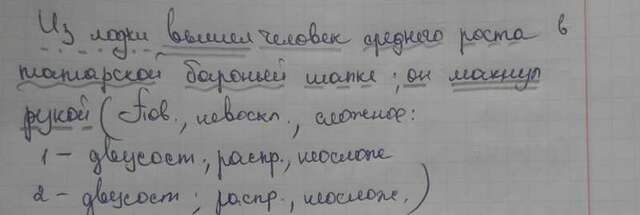 Из лодки вышел человек среднего роста в
татарской бараньей шапке; он махнул
рукой (Пов., невоскл., сложное:
1 – двусост., распр., неослож
2 – двусост., распр., неослож.)